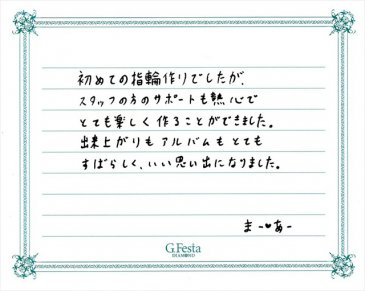 初めての指輪作りでしたが、
スタッフの方のサポートも熱心で
とても楽しく作ることができました。
出来上がりもアルバムもとても
すばらしく、いい思い出になりました。
まー♥あー
G.Festa
DIAMOND